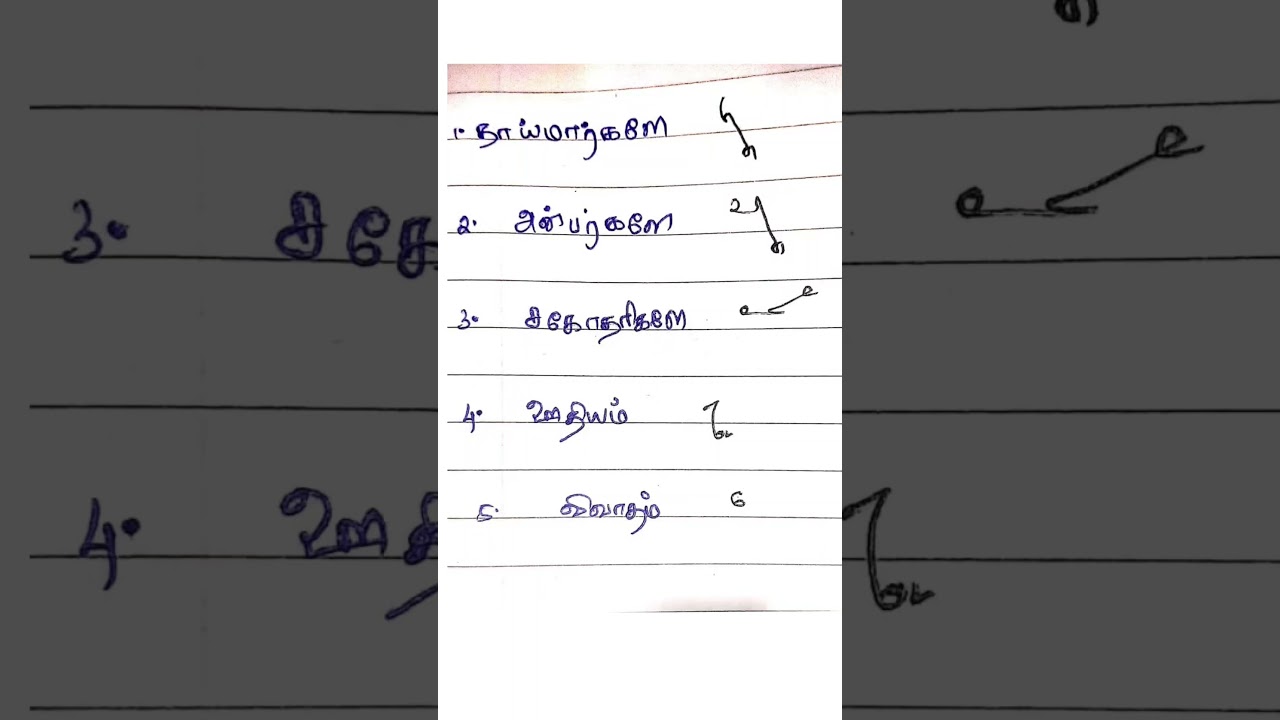 1. தாய்மார்களே
2. அன்பர்களே
3. சகோதரிகளே
4. ஊதியம்
5. விவாதம்